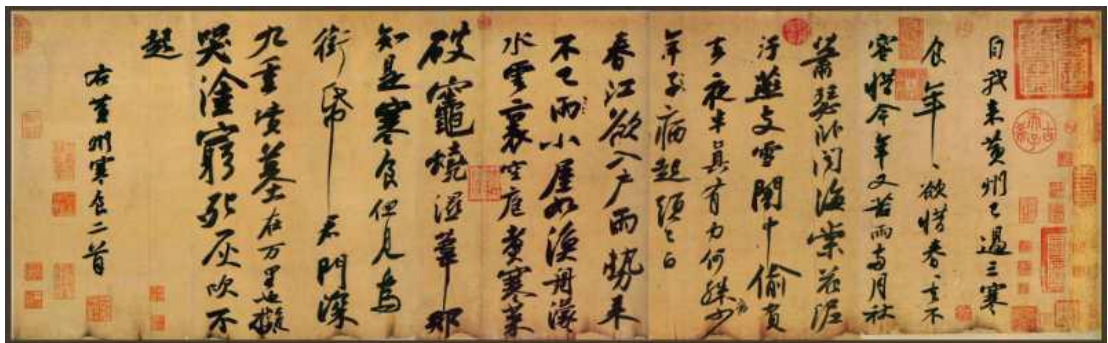 自我来黄州已過三寒
食年〻欲惜春〻去不
容惜今年又苦雨兩月秋
蕭瑟卧聞海棠花泥
汙燕支雪闇中偷負
去夜半真有力何殊少
年子病起頭已白
春江欲入戶雨勢来
不已雨小屋如漁舟濛〻
水雲裏空庖煮寒菜
破竈燒濕葦那
知是寒食但見烏
銜帋君門深
九重墳墓在万里也擬
哭塗窮死灰吹不
起
右黃州寒食二首